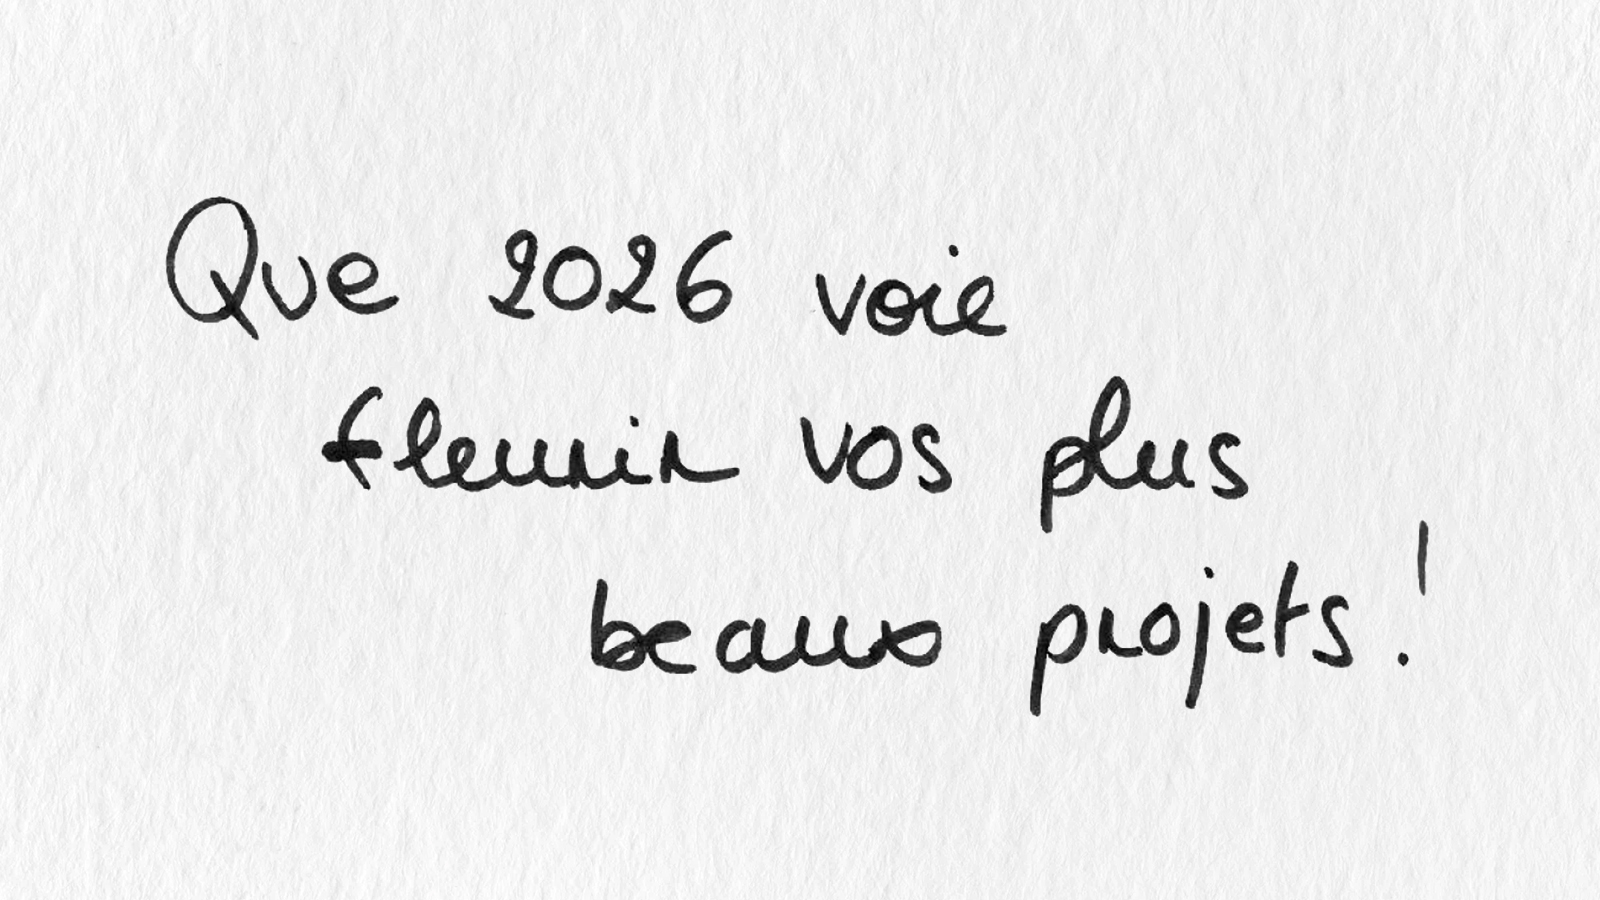 Que 2026 voie
fleurir vos plus
beaux projets !